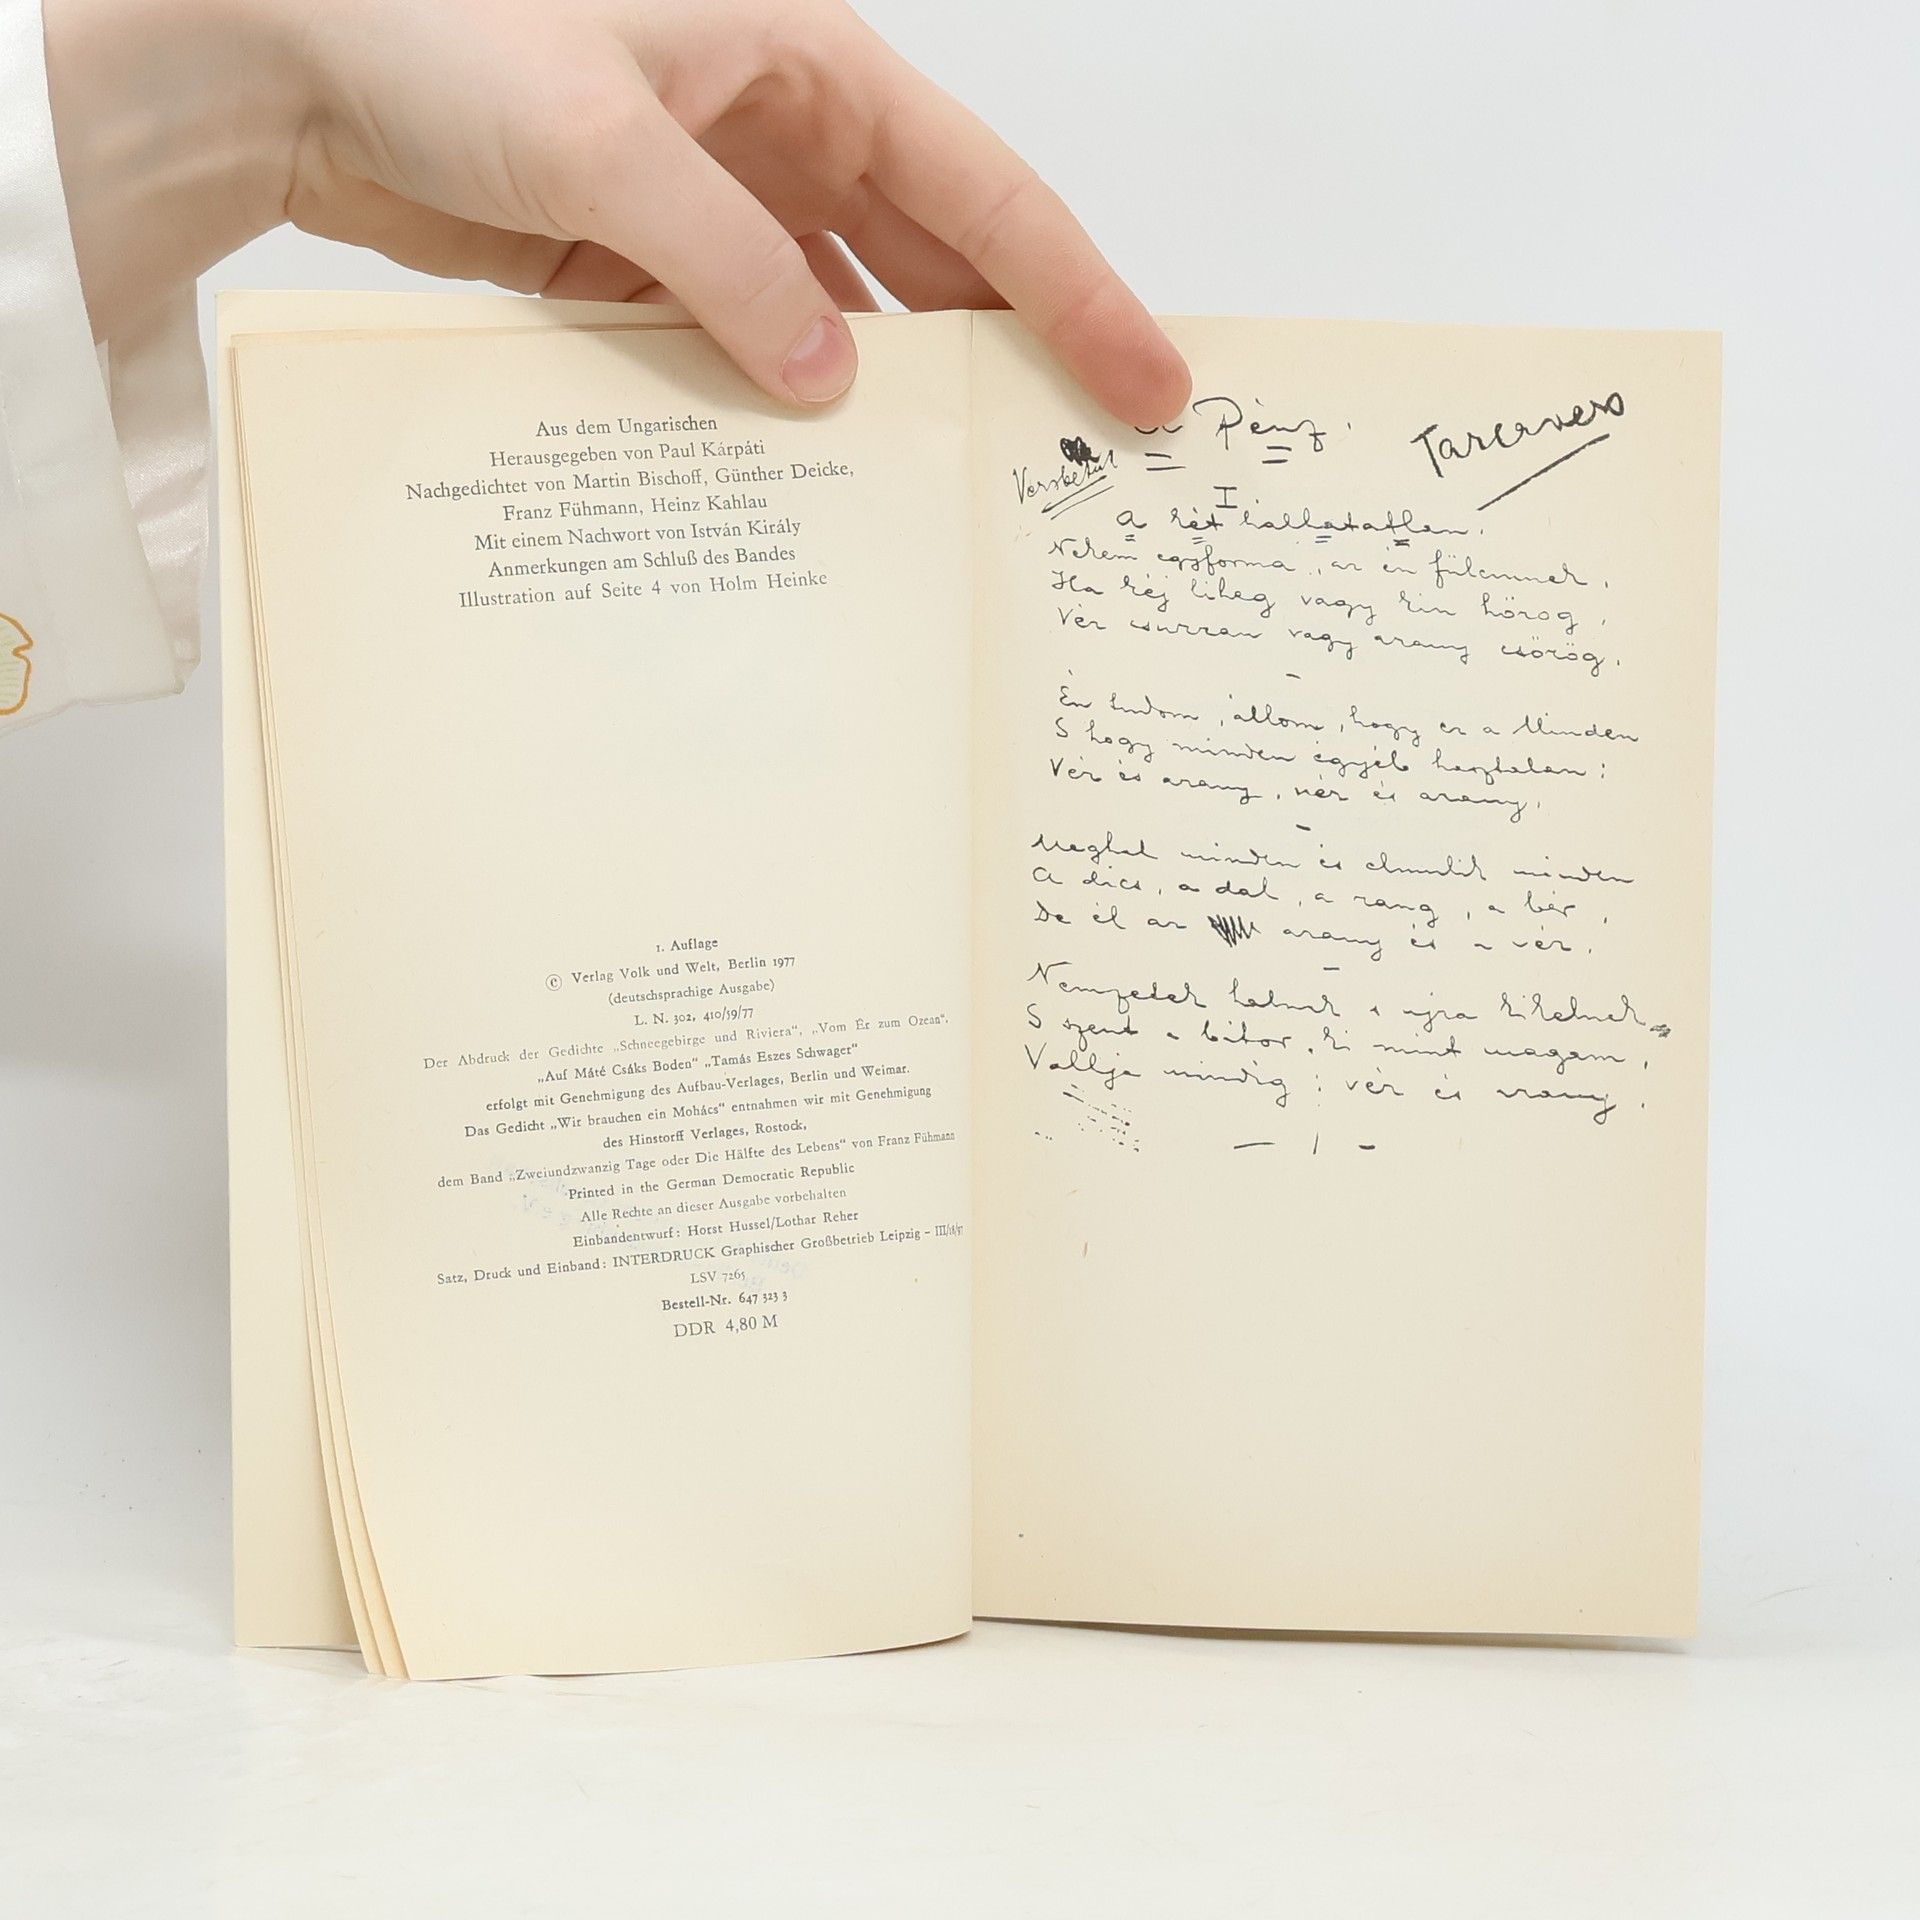 Aus dem Ungarischen
Herausgegeben von Paul Kárpáti
Nachgedichtet von Martin Bischoff, Günther Deicke,
Franz Fühmann, Heinz Kahlau
Mit einem Nachwort von István Király
Anmerkungen am Schluß des Bandes
Illustration auf Seite 4 von Holm Heinke
1. Auflage
© Verlag Volk und Welt, Berlin 1977
(deutschsprachige Ausgabe)
L. N. 302, 410/59/77
Der Abdruck der Gedichte „Schneegebirge und Riviera“, „Vom Ér zum Ozean“,
„Auf Máté Csáks Boden“ „Tamás Eszes Schwager“
erfolgt mit Genehmigung des Aufbau-Verlages, Berlin und Weimar.
Das Gedicht „Wir brauchen ein Mohács“ entnahmen wir mit Genehmigung
des Hinstorff Verlages, Rostock,
dem Band „Zweiundzwanzig Tage oder Die Hälfte des Lebens“ von Franz Fühmann
Printed in the German Democratic Republic
Alle Rechte an dieser Ausgabe vorbehalten
Einbandentwurf: Horst Hussel/Lothar Reher
Satz, Druck und Einband: INTERDRUCK Graphischer Großbetrieb Leipzig – III/18/97
LSV 7265
Bestell-Nr. 647 323 3
DDR 4,80 M
Pénz.
I
A két halhatatlan.
Nekem egyforma, az én fülemnek,
Ha kéj liheg vagy kin hörög,
Vér csurran vagy arany csörög.
Én tudom, állom, hogy ez a Minden
S hogy minden egyéb hasztalan:
Vér és arany, vér és arany.
Meghal minden és elmulik minden
A dics, a dal, a rang, a bér,
De él az arany és a vér.
Nemzetek halnak s ujra kikelnek
S szent a bátor, ki mint magam,
Vallja mindig: vér és arany.